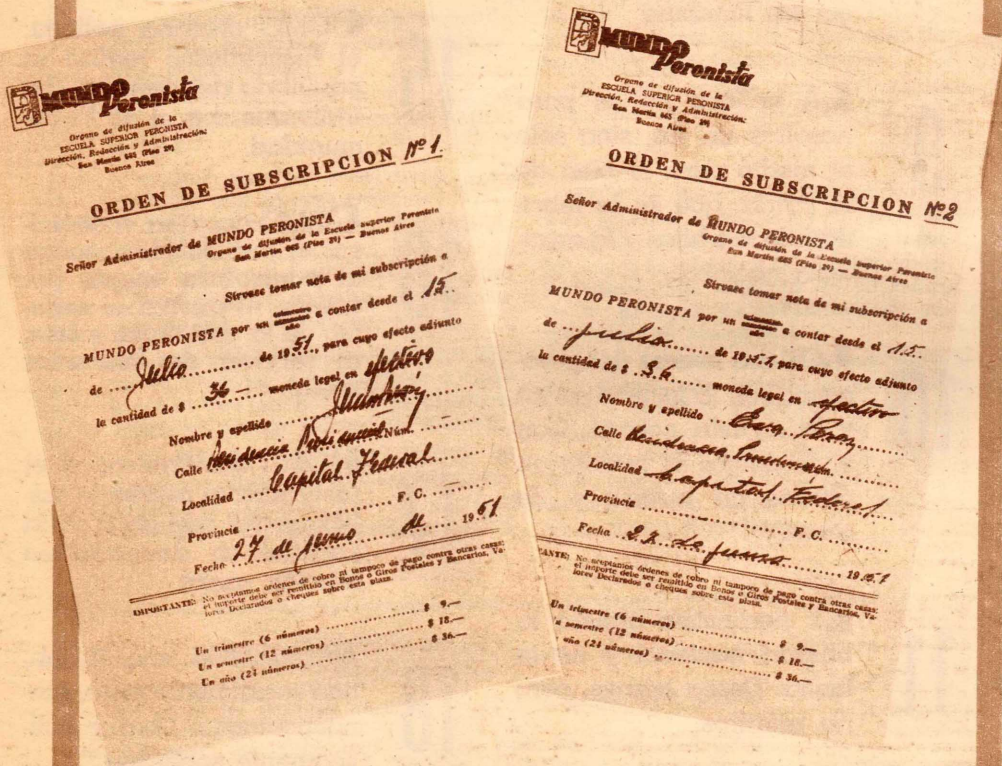 MUNDO
Peronista
Organo de difusión de la
ESCUELA SUPERIOR PERONISTA
Dirección, Redacción y Administración:
San Martín 665 (Piso 2º)
Buenos Aires
ORDEN DE SUBSCRIPCION Nº 1.
Señor Administrador de MUNDO PERONISTA
Organo de difusión de la Escuela superior Peronista
San Martín 665 (Piso 2º) — Buenos Aires
Sírvase tomar nota de mi subscripción a
MUNDO PERONISTA por un trimestre semestre año a contar desde el 15
de Julio de 1951, para cuyo efecto adjunto
la cantidad de $ 36— moneda legal en efectivo
Nombre y apellido
Calle Residencia Presidencial Núm.
Localidad Capital Federal
Provincia F. C.
Fecha 27 de junio de 1951
IMPORTANTE: No aceptamos órdenes de cobro ni tampoco de pago contra otras casas:
el importe debe ser remitido en Bonos o Giros Postales y Bancarios, Va-
lores Declarados o cheques sobre esta plaza.
Un trimestre (6 números) $ 9.—
Un semestre (12 números) $ 18.—
Un año (24 números) $ 36.—
MUNDO
Peronista
Organo de difusión de la
ESCUELA SUPERIOR PERONISTA
Dirección, Redacción y Administración:
San Martín 665 (Piso 2º)
Buenos Aires
ORDEN DE SUBSCRIPCION Nº 2
Señor Administrador de MUNDO PERONISTA
Organo de difusión de la Escuela superior Peronista
San Martín 665 (Piso 2º) — Buenos Aires
Sírvase tomar nota de mi subscripción a
MUNDO PERONISTA por un trimestre semestre año a contar desde el 15
de julio de 1951, para cuyo efecto adjunto
la cantidad de $ 36 moneda legal en efectivo
Nombre y apellido Eva Peron
Calle Residencia Presidencial Núm.
Localidad Capital Federal
Provincia F. C.
Fecha de junio 1951
ANTE: No aceptamos órdenes de cobro ni tampoco de pago contra otras casas:
el importe debe ser remitido en Bonos o Giros Postales y Bancarios, Va-
lores Declarados o cheques sobre esta plaza.
Un trimestre (6 números) $ 9.—
semestre (12 números) $ 18.—
año (24 números) $ 36.—